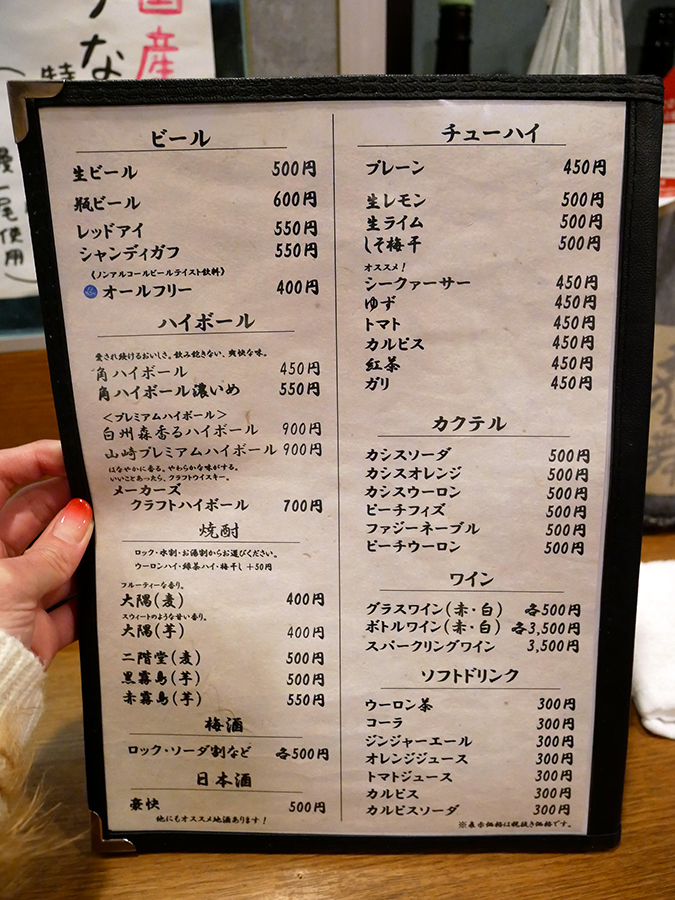 国産
な
特
尾
使用
ビール
生ビール 500円
瓶ビール 600円
レッドアイ 550円
シャンディガフ 550円
《ノンアルコールビールテイスト飲料》
オールフリー 400円
ハイボール
愛され続けるおいしさ。飲み飽きない、爽快な味。
角ハイボール 450円
角ハイボール濃いめ 550円
＜プレミアムハイボール＞
白州森香るハイボール 900円
山崎プレミアムハイボール 900円
はなやかに香る。やわらかな味がする。
いいことあったら、クラフトウイスキー。
メーカーズ
クラフトハイボール 700円
焼酎
ロック・水割・お湯割からお選びください。
ウーロンハイ・緑茶ハイ・梅干し＋50円
フルーティーな香り。
大隅(麦) 400円
スウィートのような甘い香り。
大隅(芋) 400円
二階堂(麦) 500円
黒霧島(芋) 500円
赤霧島(芋) 550円
梅酒
ロック・ソーダ割など 各500円
日本酒
豪快 500円
他にもオススメ地酒あります！
チューハイ
プレーン 450円
生レモン 500円
生ライム 500円
しそ梅干 500円
オススメ！
シークァーサー 450円
ゆず 450円
トマト 450円
カルピス 450円
紅茶 450円
ガリ 450円
カクテル
カシスソーダ 500円
カシスオレンジ 500円
カシスウーロン 500円
ピーチフィズ 500円
ファジーネーブル 500円
ピーチウーロン 500円
ワイン
グラスワイン(赤・白) 各500円
ボトルワイン(赤・白) 各3,500円
スパークリングワイン 3,500円
ソフトドリンク
ウーロン茶 300円
コーラ 300円
ジンジャーエール 300円
オレンジジュース 300円
トマトジュース 300円
カルピス 300円
カルピスソーダ 300円
※表示価格は税抜き価格です。